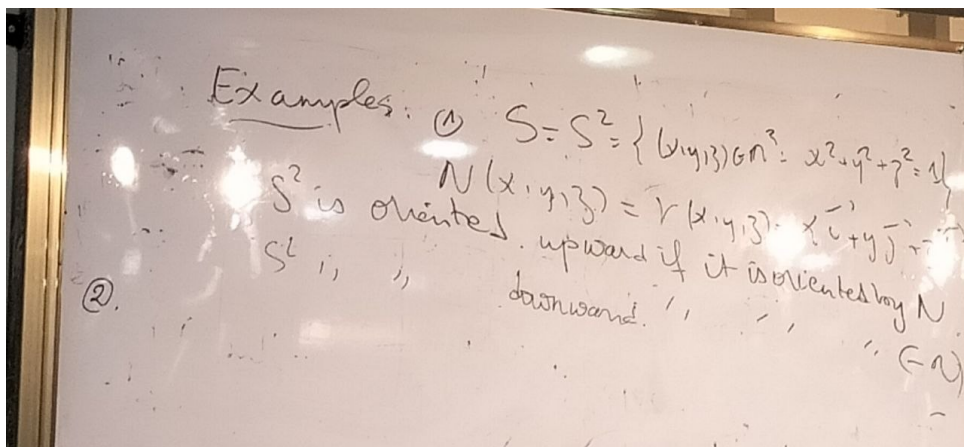 Examples: ① S = S² = { (x,y,z) ∈ ℝ³ : x² + y² + z² = 1 }
N(x,y,z) = r(x,y,z) = x i⃗ + y j⃗ +
S² is oriented upward if it is oriented by N.
S² ,, ,, downward ,, ,, ,, (-N)
②.